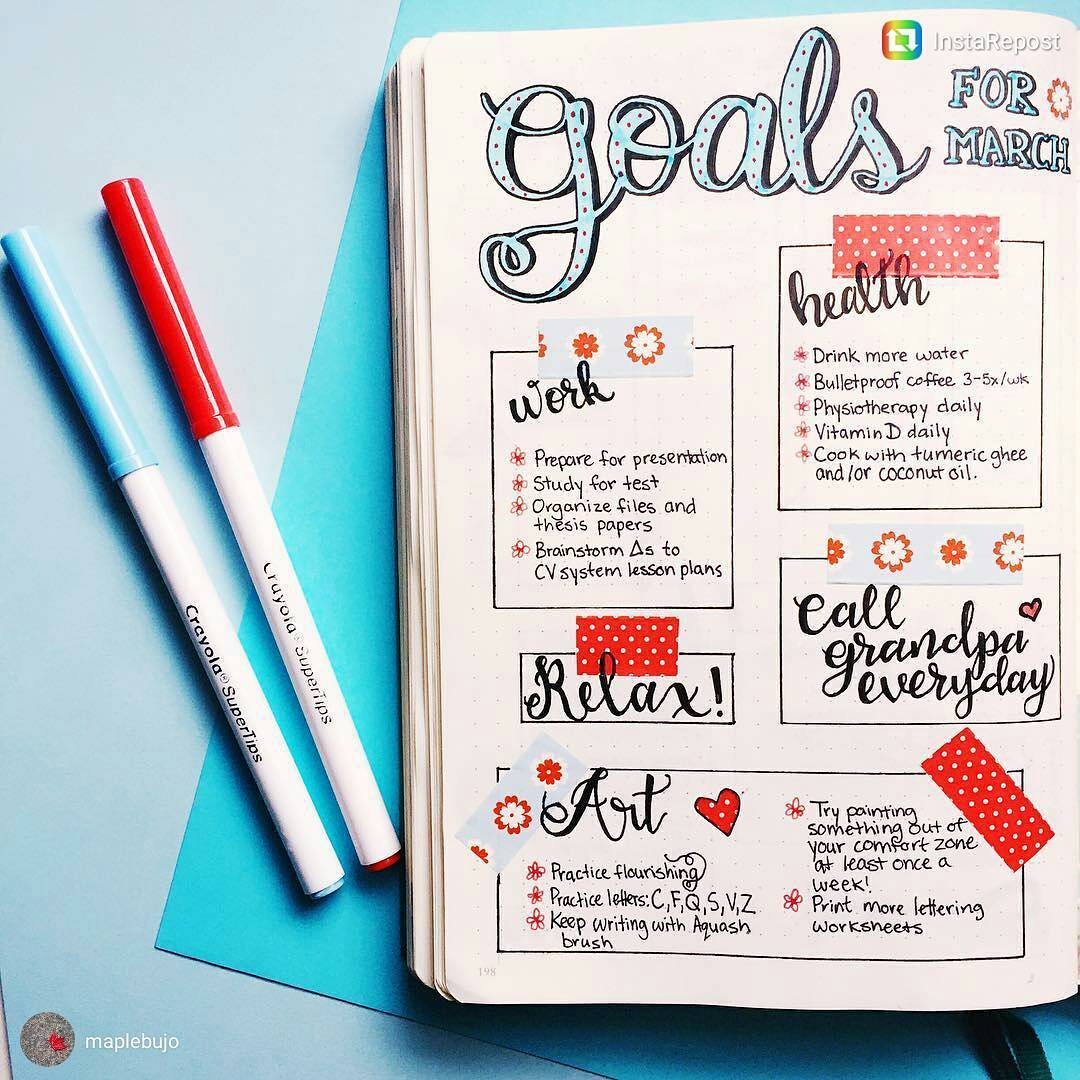 InstaRepost
goals
FOR
MARCH
health
Drink more water
Bulletproof coffee 3-5x/wk
Physiotherapy daily
Vitamin D daily
Cook with tumeric ghee
and/or coconut oil.
work
Prepare for presentation
Study for test
Organize files and
thesis papers
Brainstorm Δs to
CV system lesson plans
Call
grandpa
everyday
Relax!
Art
Practice flourishing
Practice letters: C, F, Q, S, V, Z
Keep writing with Aquash
brush
Try painting
something out of
your comfort zone
at least once a
week!
Print more lettering
worksheets
198
Crayola® SuperTips
Crayola® SuperTips
maplebujo